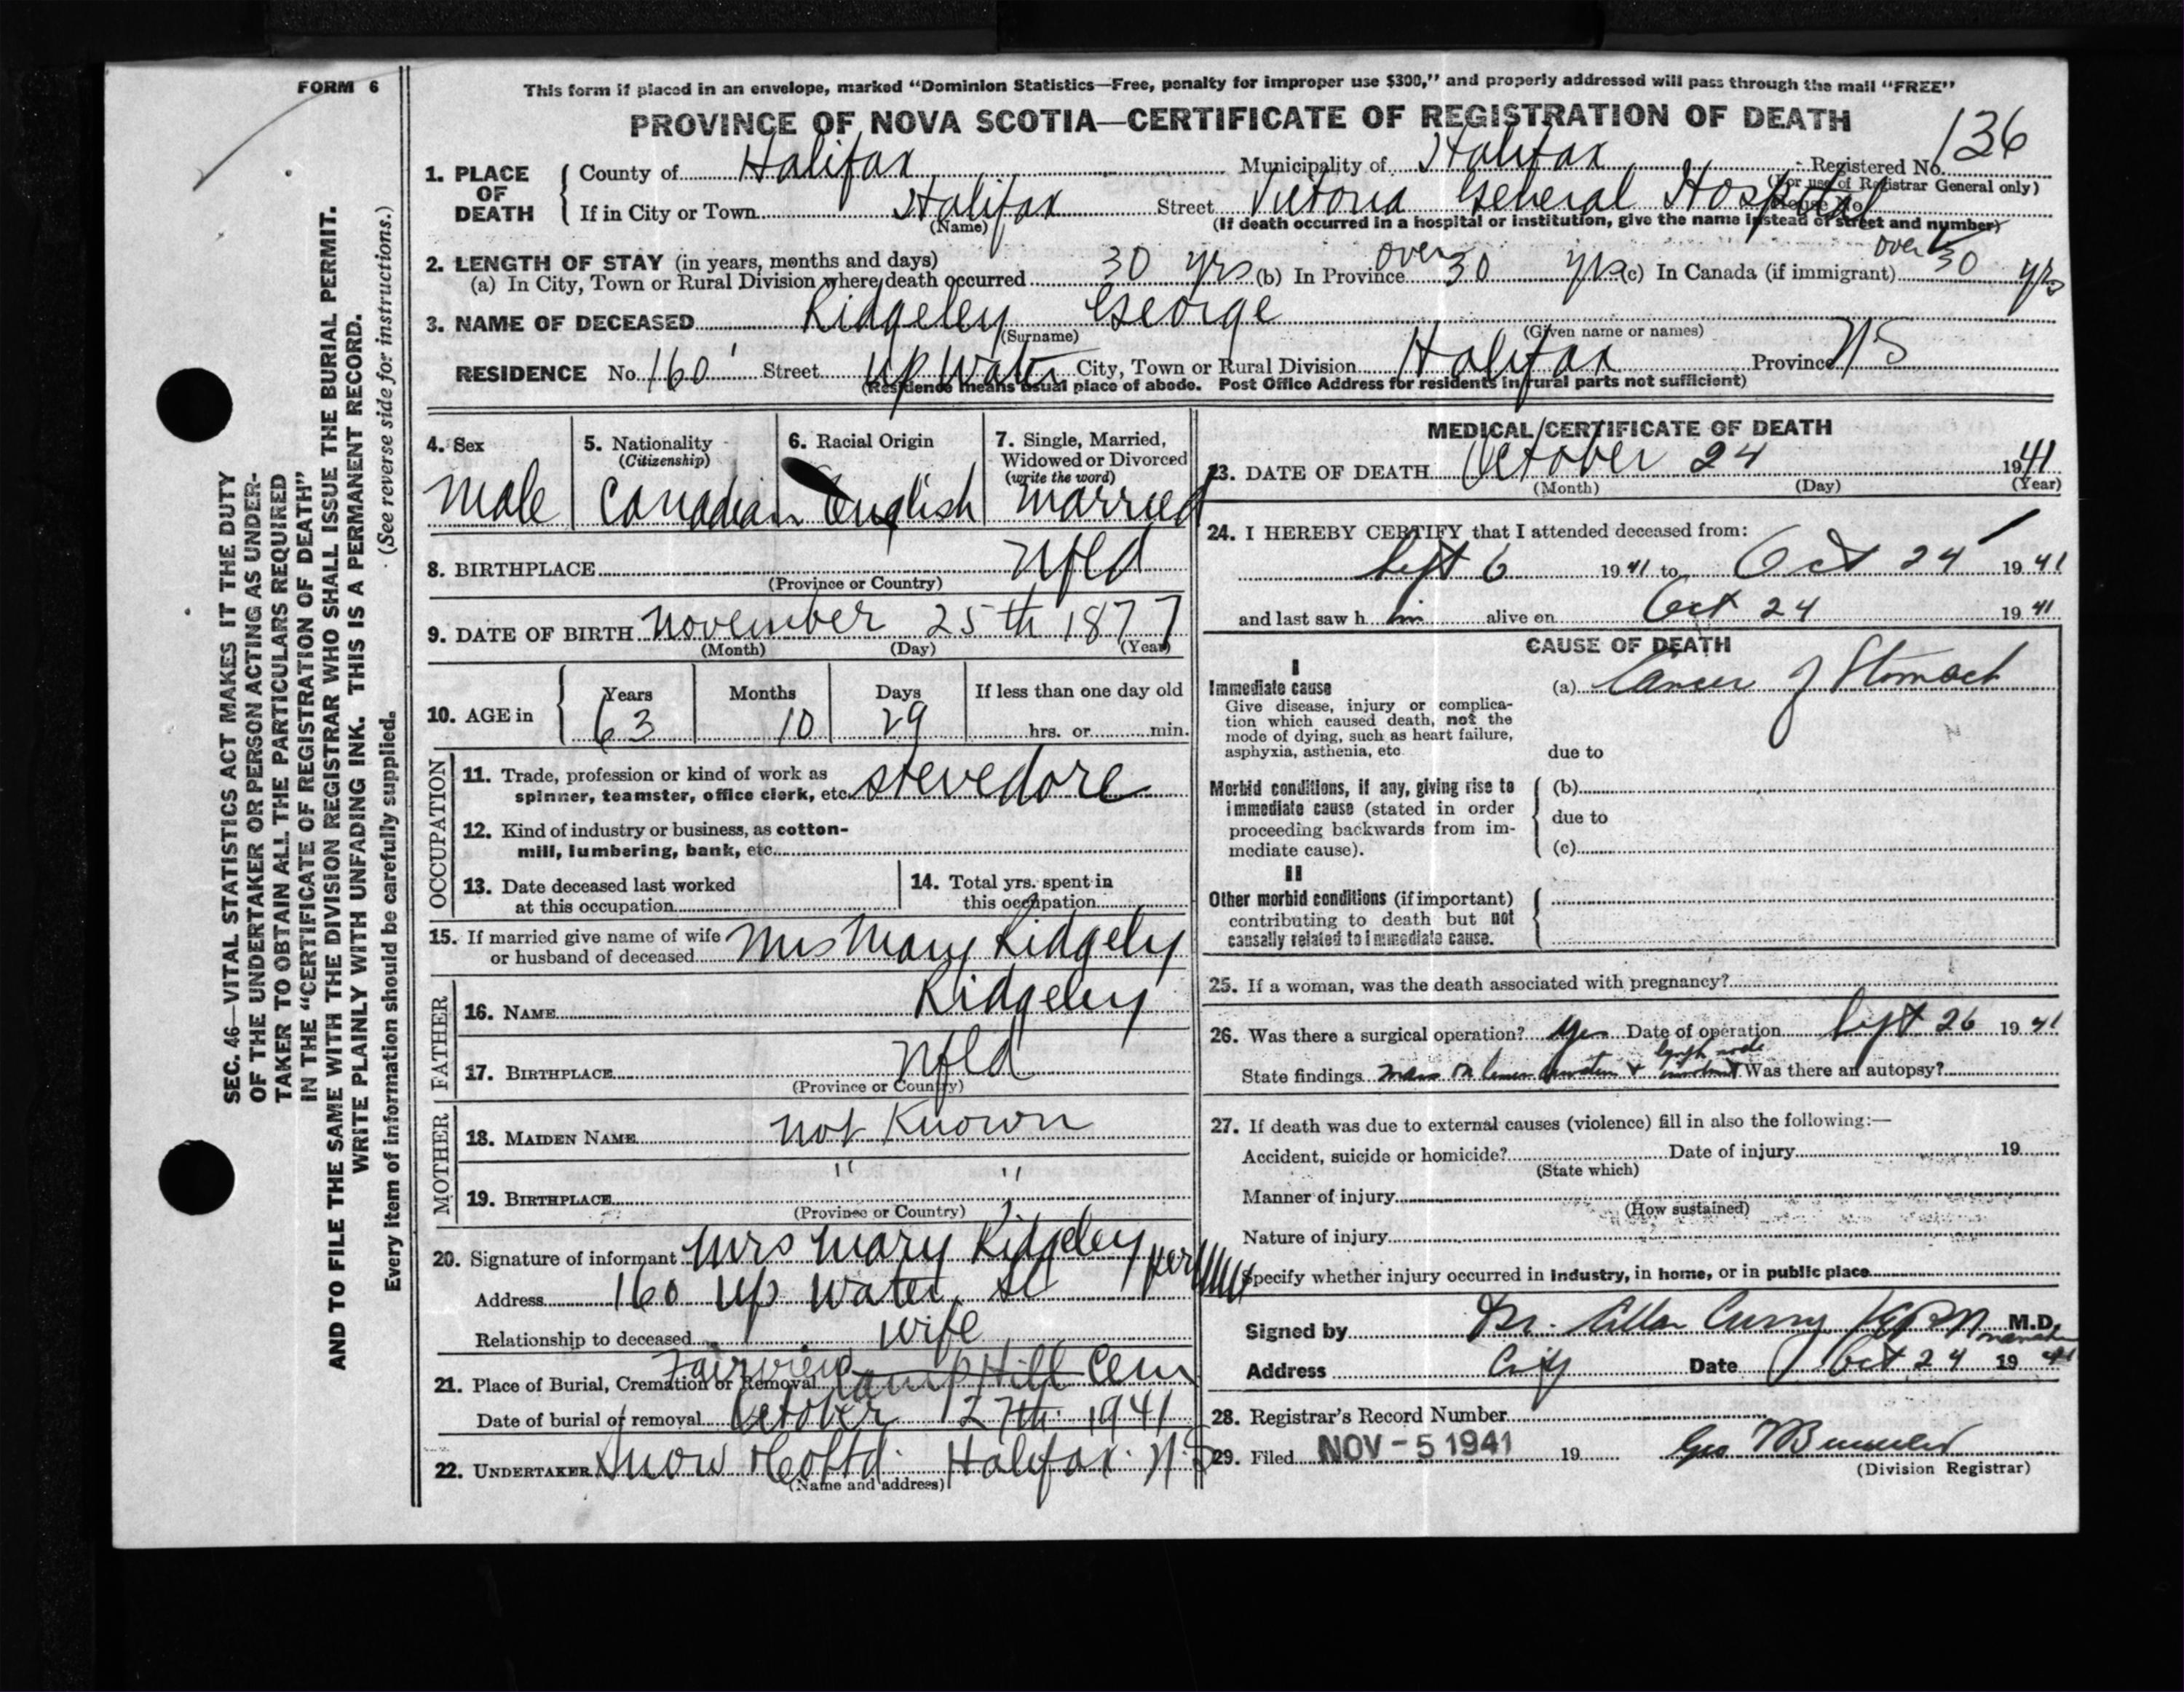 FORM 6
This form if placed in an envelope, marked "Dominion Statistics—Free, penalty for improper use $300," and properly addressed will pass through the mail "FREE"
PROVINCE OF NOVA SCOTIA—CERTIFICATE OF REGISTRATION OF DEATH
1. PLACE OF DEATH
County of Halifax Municipality of Halifax Registered No. 136
(For use of Registrar General only)
If in City or Town Halifax Street Victoria General Hospital House No
(Name) (If death occurred in a hospital or institution, give the name instead of street and number)
2. LENGTH OF STAY (in years, months and days)
(a) In City, Town or Rural Division where death occurred 30 yrs (b) In Province over 30 yrs (c) In Canada (if immigrant) over 30 yrs
3. NAME OF DECEASED Ridgeley George
(Surname) (Given name or names)
RESIDENCE No. 160 Street Up Water City, Town or Rural Division Halifax Province NS
(Residence means usual place of abode. Post Office Address for residents in rural parts not sufficient)
4. Sex
male
5. Nationality
(Citizenship)
Canadian
6. Racial Origin
English
7. Single, Married,
Widowed or Divorced
(write the word)
married
8. BIRTHPLACE Nfld
(Province or Country)
9. DATE OF BIRTH November 25th 1877
(Month) (Day) (Year)
10. AGE in
Years Months Days If less than one day old
63 10 29 hrs. or min.
OCCUPATION
11. Trade, profession or kind of work as
spinner, teamster, office clerk, etc. stevedore
12. Kind of industry or business, as cotton-
mill, lumbering, bank, etc.
13. Date deceased last worked
at this occupation
14. Total yrs. spent in
this occupation
15. If married give name of wife
or husband of deceased Mrs Mary Ridgely
FATHER
16. NAME Ridgeley
17. BIRTHPLACE Nfld
(Province or Country)
MOTHER
18. MAIDEN NAME not Known
19. BIRTHPLACE " "
(Province or Country)
20. Signature of informant Mrs Mary Ridgeley per
Address 160 Up Water St
Relationship to deceased wife
21. Place of Burial, Cremation or Removal Fairview Camp Hill Cem
Date of burial or removal October 27th 1941
22. UNDERTAKER Snow & Co Ltd. Halifax. N.S
(Name and address)
MEDICAL CERTIFICATE OF DEATH
23. DATE OF DEATH October 24 1941
(Month) (Day) (Year)
24. I HEREBY CERTIFY that I attended deceased from:
Sept 6 1941 to Oct 24 1941
and last saw h im alive on Oct 24 1941
CAUSE OF DEATH
I
Immediate cause
Give disease, injury or complica-
tion which caused death, not the
mode of dying, such as heart failure,
asphyxia, asthenia, etc.
(a) Cancer of Stomach
due to
Morbid conditions, if any, giving rise to
immediate cause (stated in order
proceeding backwards from im-
mediate cause).
(b)
due to
(c)
II
Other morbid conditions (if important)
contributing to death but not
causally related to immediate cause.
25. If a woman, was the death associated with pregnancy?
26. Was there a surgical operation? Yes Date of operation Sept 26 1941
State findings mass on lesser & lymph node Was there an autopsy?
27. If death was due to external causes (violence) fill in also the following:—
Accident, suicide or homicide? Date of injury 19
(State which)
Manner of injury
(How sustained)
Nature of injury
Specify whether injury occurred in industry, in home, or in public place
Signed by Dr. Allan Curry M.D.
Address City Date Oct 24 1941
28. Registrar's Record Number
29. Filed NOV - 5 1941 19 Geo
(Division Registrar)
SEC. 46—VITAL STATISTICS ACT MAKES IT THE DUTY
OF THE UNDERTAKER OR PERSON ACTING AS UNDER-
TAKER TO OBTAIN ALL THE PARTICULARS REQUIRED
IN THE "CERTIFICATE OF REGISTRATION OF DEATH"
AND TO FILE THE SAME WITH THE DIVISION REGISTRAR WHO SHALL ISSUE THE BURIAL PERMIT.
WRITE PLAINLY WITH UNFADING INK. THIS IS A PERMANENT RECORD.
Every item of information should be carefully supplied. (See reverse side for instructions.)